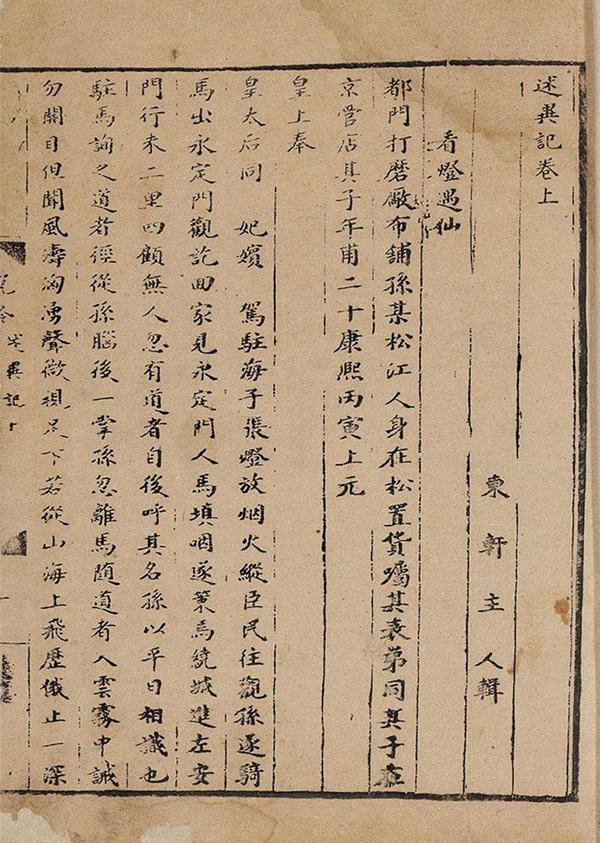 述異記卷上
東軒主人輯
看燈遇仙
都門打磨厰布鋪孫某松江人身在松置貨囑其表弟同其子在
京營店其子年甫二十康熙丙寅上元
皇上奉
皇太后同 妃嬪 駕駐海子張燈放烟火縱臣民往觀孫遂騎
馬出永定門觀訖回家見永定門人馬填咽遂策馬繞城進左安
門行未二里四顧無人忽有道者自後呼其名孫以平日相識也
駐馬詢之道者徑從孫腦後一掌孫忽離馬随道者入雲霧中誡
勿開目但聞風濤洶湧聲微視足下若從山海上飛歷俄止一深
述異記